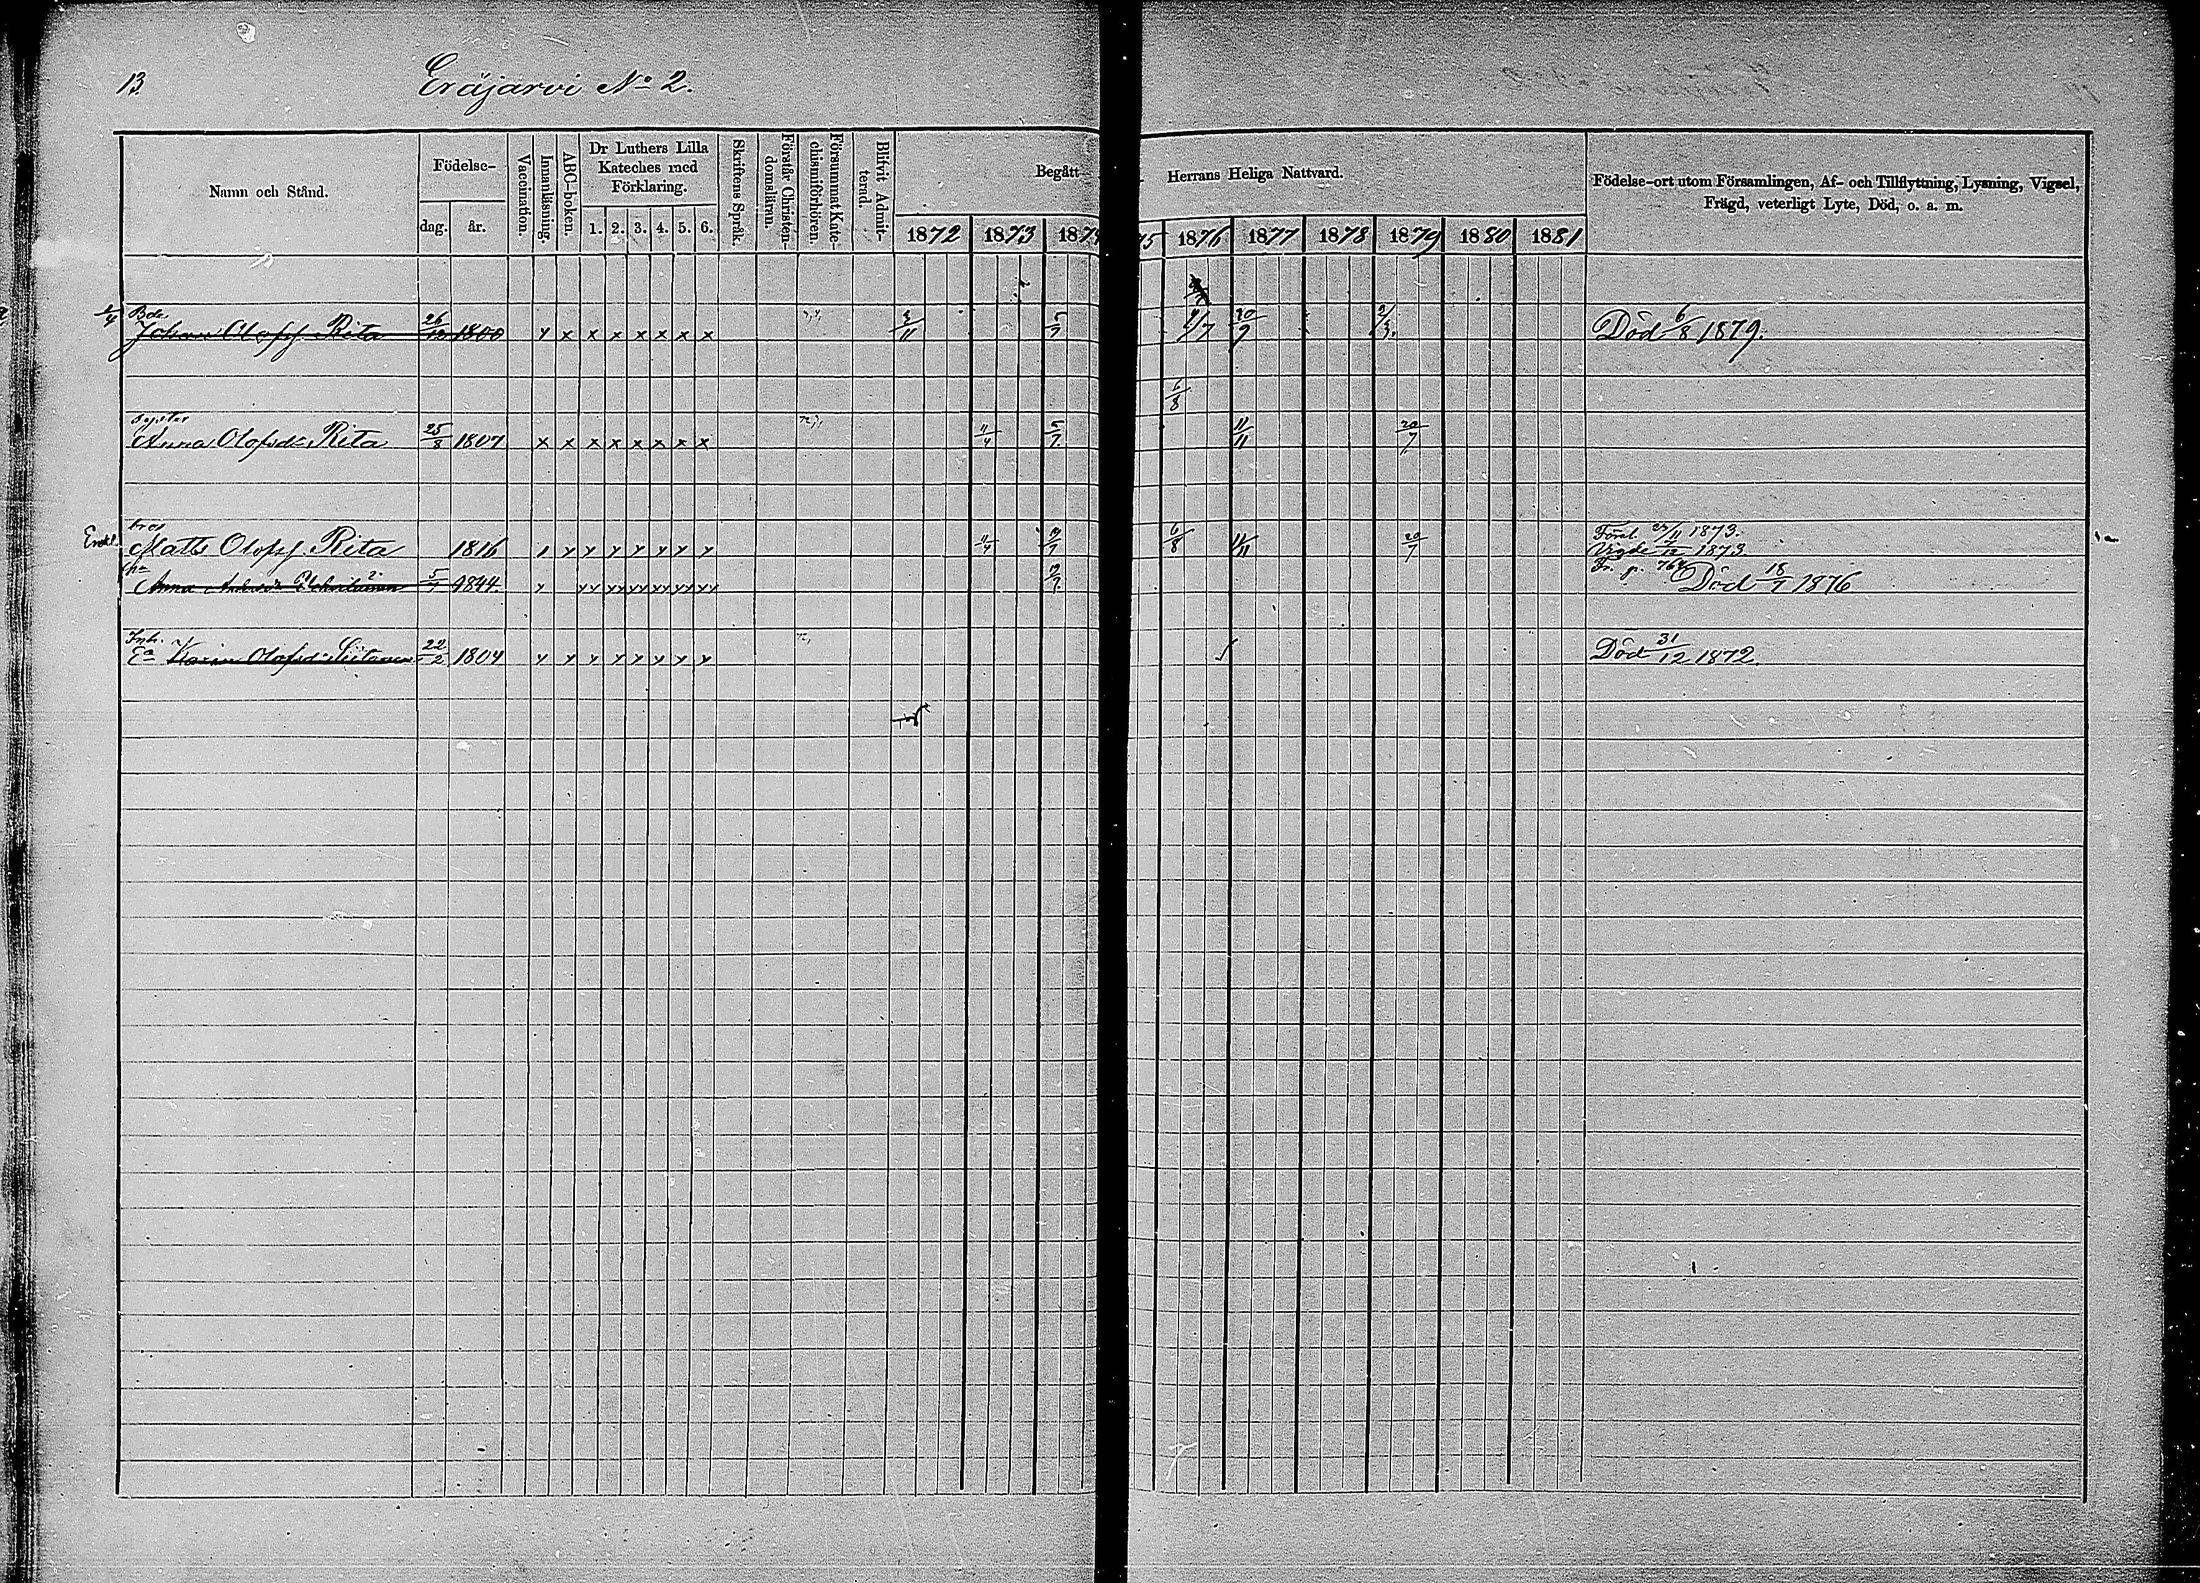 13.
Eräjärvi No 2.
Namn och Stånd.
Födelse-
dag.
år.
Vaccination.
Innanläsning.
ABC-boken.
Dr Luthers Lilla
Kateches med
Förklaring.
1. 2. 3. 4. 5. 6.
Skriftens Språk.
Förstår Christen-
domsläran.
Försummat Kate-
chismiförhören.
Blifvit Admit-
terad.
Begått
Herrans Heliga Nattvard.
1872 1873 1874 75 1876 1877 1878 1879 1880 1881
Födelse-ort utom Församlingen, Af- och Tillflyttning, Lysning, Vigsel,
Frägd, veterligt Lyte, Död, o. a. m.
Bde
Johan Olofss. Rita 26/12 1800 x x x x x x x x 5/7 2/7 20/9 Död 6/8 1879.
6/8
Syster
Anna Olofsdr Rita 25/8 1807 x x x x x x x x 11/4 5/7 11/11 20/7
Enkl.
bror
Matts Olofss. Rita 1816 11/4 6/8 11/11 20/7 1873.
Vigde 1873
Anna 1844. Död 18/7 1876
Inh.
Ea Karin Olofsdr 22/2 1804 Död 31/12 1872.